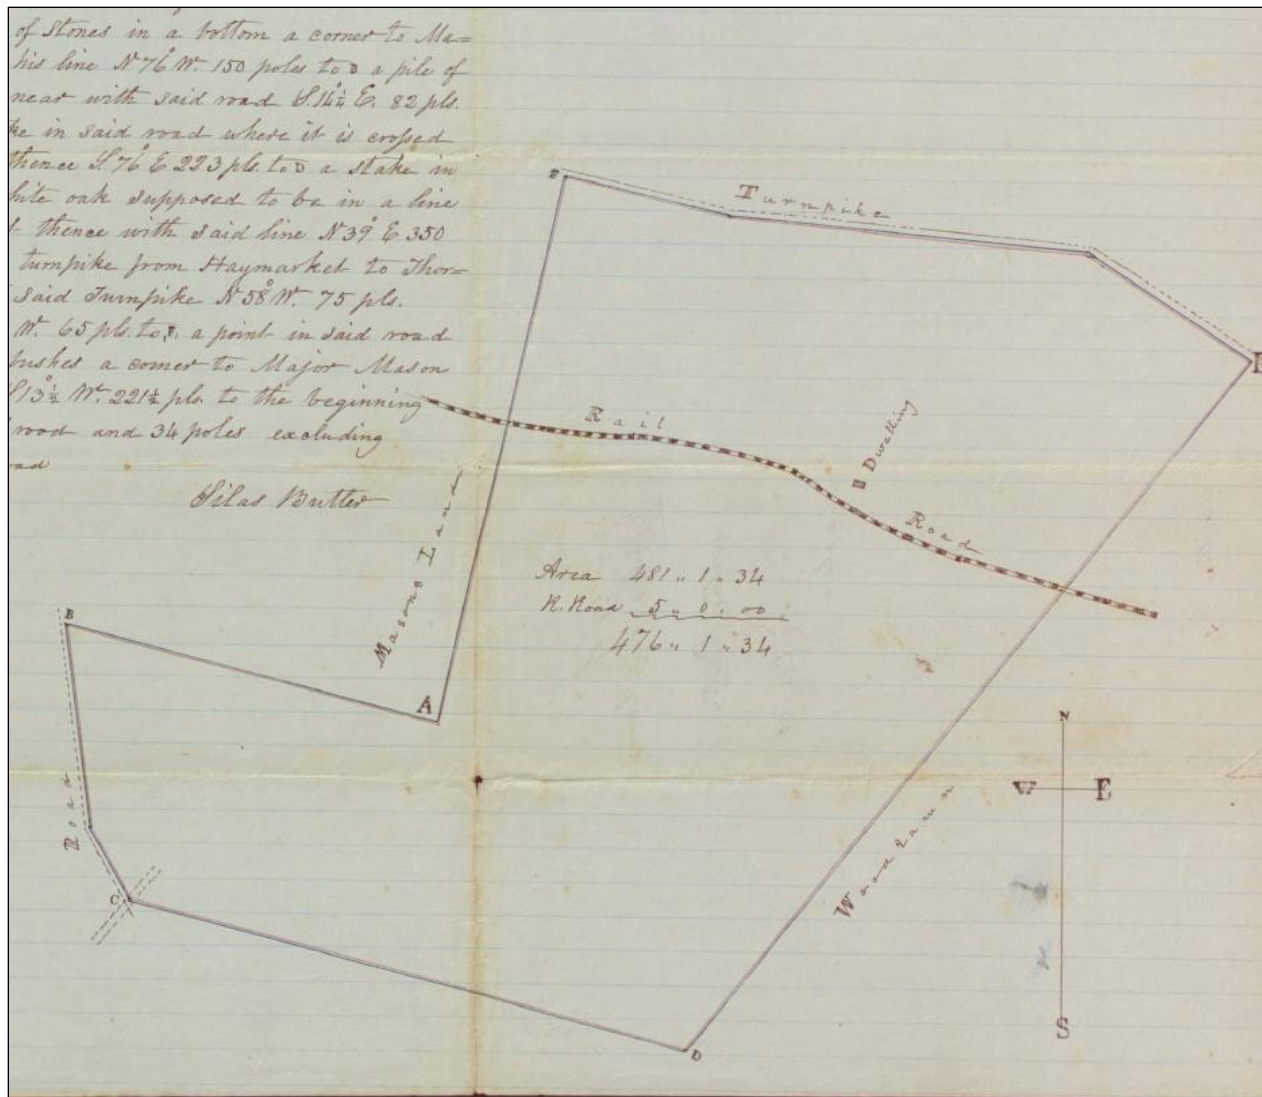 of Stones in a bottom a corner to Ma=
his line N 76° W. 150 poles to B a pile of
near with said road S. 14¼ E. 82 pls.
ke in said road where it is crossed
thence S 76° E 223 pls. to D a stake in
hite oak supposed to be in a line
thence with said line N 39° E 350
turnpike from Haymarket to Thor=
said Turnpike N 58° W. 75 pls.
W. 65 pls. to F. a point in said road
bushes a corner to Major Mason
S 13°½ W. 221½ pls. to the beginning
rood and 34 poles excluding
ad
Silas Butler
Turnpike
E
Rail
Dwelling
Road
Masons Land
Area 481 " 1 " 34
R. Road 5 " 0 " 00
476 " 1 " 34
B
A
N
W E
S
Road
C
Woodlawn
D